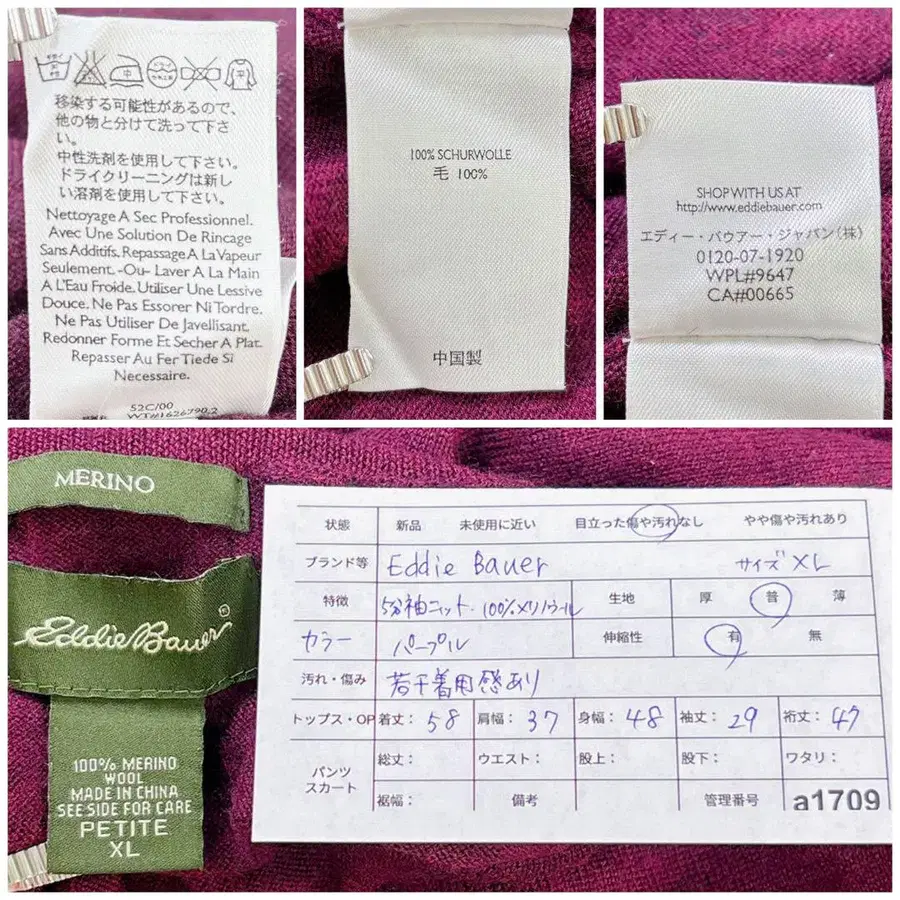 移染する可能性があるので、
他の物と分けて洗って下さ
い。
中性洗剤を使用して下さい。
ドライクリーニングは新し
い溶剤を使用して下さい。
Nettoyage A Sec Professionnel.
Avec Une Solution De Rincage
Sans Additifs. Repassage A La Vapeur
Seulement. -Ou- Laver A La Main
A L'Eau Froide. Utiliser Une Lessive
Douce. Ne Pas Essorer Ni Tordre.
Ne Pas Utiliser De Javellisant.
Redonner Forme Et Secher A Plat.
Repasser Au Fer Tiede Si
Necessaire.
52C/00
WT#1626790.2
100% SCHURWOLLE
毛 100%
中国製
SHOP WITH US AT
http://www.eddiebauer.com
エディー・バウアー・ジャパン(株)
0120-07-1920
WPL#9647
CA#00665
MERINO
Eddie Bauer®
100% MERINO
WOOL
MADE IN CHINA
SEE SIDE FOR CARE
PETITE
XL
状態 新品 未使用に近い 目立った傷や汚れなし やや傷や汚れあり
ブランド等 Eddie Bauer サイズ XL
特徴 5分袖ニット・100%メリノウール 生地 厚 普 薄
カラー パープル 伸縮性 有 無
汚れ・傷み 若干着用感あり
トップス・OP 着丈: 58 肩幅: 37 身幅: 48 袖丈: 29 裄丈: 47
パンツ スカート 総丈: ウエスト: 股上: 股下: ワタリ:
裾幅: 備考 管理番号 a1709